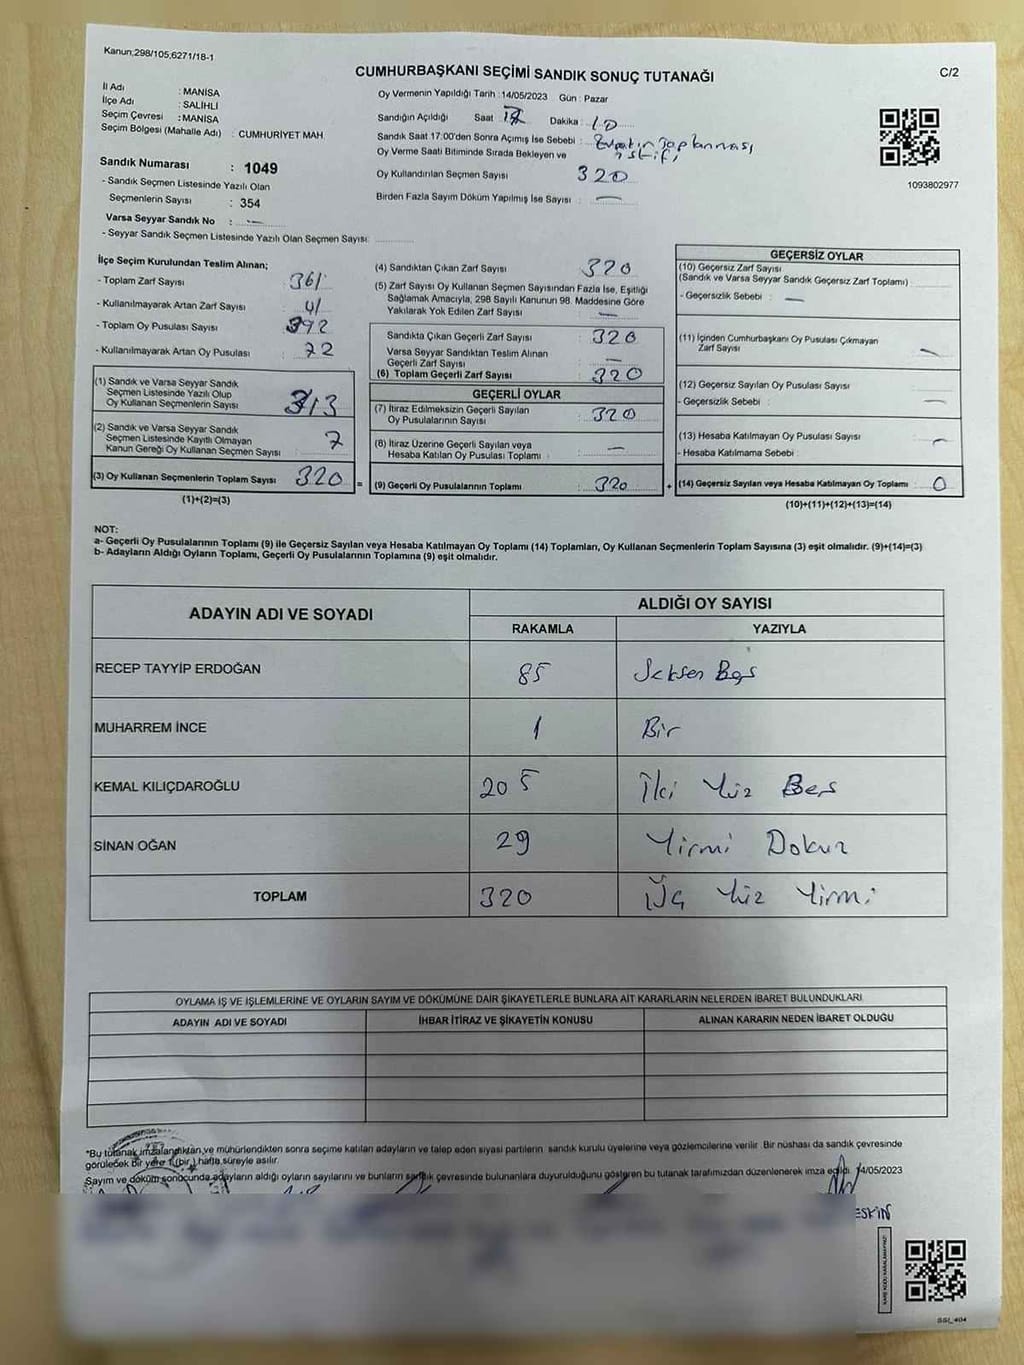 Kanun,298/105,6271/18-1
C/2
CUMHURBAŞKANI SEÇİMİ SANDIK SONUÇ TUTANAĞI
İl Adı : MANİSA
İlçe Adı : SALİHLİ
Seçim Çevresi : MANİSA
Seçim Bölgesi (Mahalle Adı) : CUMHURİYET MAH.
Sandık Numarası : 1049
- Sandık Seçmen Listesinde Yazılı Olan
Seçmenlerin Sayısı : 354
Varsa Seyyar Sandık No : —
- Seyyar Sandık Seçmen Listesinde Yazılı Olan Seçmen Sayısı:
Oy Vermenin Yapıldığı Tarih :14/05/2023 Gün : Pazar
Sandığın Açıldığı Saat Dakika : 10
Sandık Saat 17:00'den Sonra Açımış İse Sebebi :
Oy Verme Saati Bitiminde Sırada Bekleyen ve
Oy Kullandırılan Seçmen Sayısı 320
Birden Fazla Sayım Döküm Yapılmış İse Sayısı : —
1093802977
İlçe Seçim Kurulundan Teslim Alınan;
- Toplam Zarf Sayısı : 361
- Kullanılmayarak Artan Zarf Sayısı : 41
- Toplam Oy Pusulası Sayısı : 392
- Kullanılmayarak Artan Oy Pusulası : 72
(1) Sandık ve Varsa Seyyar Sandık
Seçmen Listesinde Yazılı Olup
Oy Kullanan Seçmenlerin Sayısı 313
(2) Sandık ve Varsa Seyyar Sandık
Seçmen Listesinde Kayıtlı Olmayan
Kanun Gereği Oy Kullanan Seçmen Sayısı 7
(3) Oy Kullanan Seçmenlerin Toplam Sayısı 320 =
(1)+(2)=(3)
(4) Sandıktan Çıkan Zarf Sayısı : 320
(5) Zarf Sayısı Oy Kullanan Seçmen Sayısından Fazla İse, Eşitliği
Sağlamak Amacıyla, 298 Sayılı Kanunun 98. Maddesine Göre
Yakılarak Yok Edilen Zarf Sayısı : —
Sandıkta Çıkan Geçerli Zarf Sayısı : 320
Varsa Seyyar Sandıktan Teslim Alınan
Geçerli Zarf Sayısı : —
(6) Toplam Geçerli Zarf Sayısı : 320
GEÇERLİ OYLAR
(7) İtiraz Edilmeksizin Geçerli Sayılan
Oy Pusulalarının Sayısı : 320
(8) İtiraz Üzerine Geçerli Sayılan veya
Hesaba Katılan Oy Pusulası Toplamı : —
(9) Geçerli Oy Pusulalarının Toplamı : 320 +
GEÇERSİZ OYLAR
(10) Geçersiz Zarf Sayısı
(Sandık ve Varsa Seyyar Sandık Geçersiz Zarf Toplamı) :
- Geçersizlik Sebebi : —
(11) İçinden Cumhurbaşkanı Oy Pusulası Çıkmayan
Zarf Sayısı : —
(12) Geçersiz Sayılan Oy Pusulası Sayısı :
- Geçersizlik Sebebi : —
(13) Hesaba Katılmayan Oy Pusulası Sayısı : —
- Hesaba Katılmama Sebebi :
(14) Geçersiz Sayılan veya Hesaba Katılmayan Oy Toplamı : 0
(10)+(11)+(12)+(13)=(14)
NOT:
a- Geçerli Oy Pusulalarının Toplamı (9) ile Geçersiz Sayılan veya Hesaba Katılmayan Oy Toplamı (14) Toplamları, Oy Kullanan Seçmenlerin Toplam Sayısına (3) eşit olmalıdır. (9)+(14)=(3)
b- Adayların Aldığı Oyların Toplamı, Geçerli Oy Pusulalarının Toplamına (9) eşit olmalıdır.
ADAYIN ADI VE SOYADI
ALDIĞI OY SAYISI
RAKAMLA YAZIYLA
RECEP TAYYİP ERDOĞAN 85 Seksen Beş
MUHARREM İNCE 1 Bir
KEMAL KILIÇDAROĞLU 205 İki Yüz Beş
SİNAN OĞAN 29 Yirmi Dokuz
TOPLAM 320 Üç Yüz Yirmi
OYLAMA İŞ VE İŞLEMLERİNE VE OYLARIN SAYIM VE DÖKÜMÜNE DAİR ŞİKAYETLERLE BUNLARA AİT KARARLARIN NELERDEN İBARET BULUNDUKLARI
ADAYIN ADI VE SOYADI İHBAR İTİRAZ VE ŞİKAYETİN KONUSU ALINAN KARARIN NEDEN İBARET OLDUĞU
*Bu tutanak imzalandıktan ve mühürlendikten sonra seçime katılan adayların ve talep eden siyasi partilerin sandık kurulu üyelerine veya gözlemcilerine verilir. Bir nüshası da sandık çevresinde
görülecek bir yere 1 (bir) hafta süreyle asılır.
Sayım ve döküm sonucunda adayların aldığı oyların sayılarını ve bunların sandık çevresinde bulunanlara duyurulduğunu gösteren bu tutanak tarafımızdan düzenlenerek imza edildi. 14/05/2023
ESKİN
SSİ_404